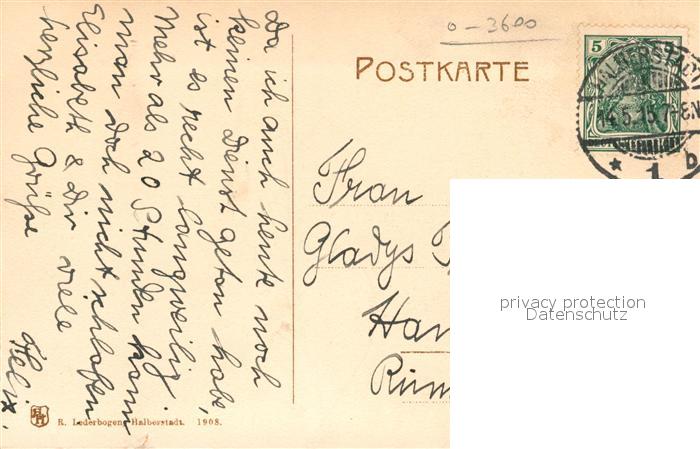 o-3600
POSTKARTE
5
HALBERSTADT
14.5.15.7-8N
* 1 b
Da ich auch heute noch
keinen Dienst getan habe,
ist es recht langweilig
Mehr als 20 Stunden kann
man doch nicht schlafen
Elisabeth & Dir viele
herzliche Grüße
Felix.
Frau
Gladys
Han
Rüm
privacy protection
Datenschutz
R. Lederbogen, Halberstadt. 1908.